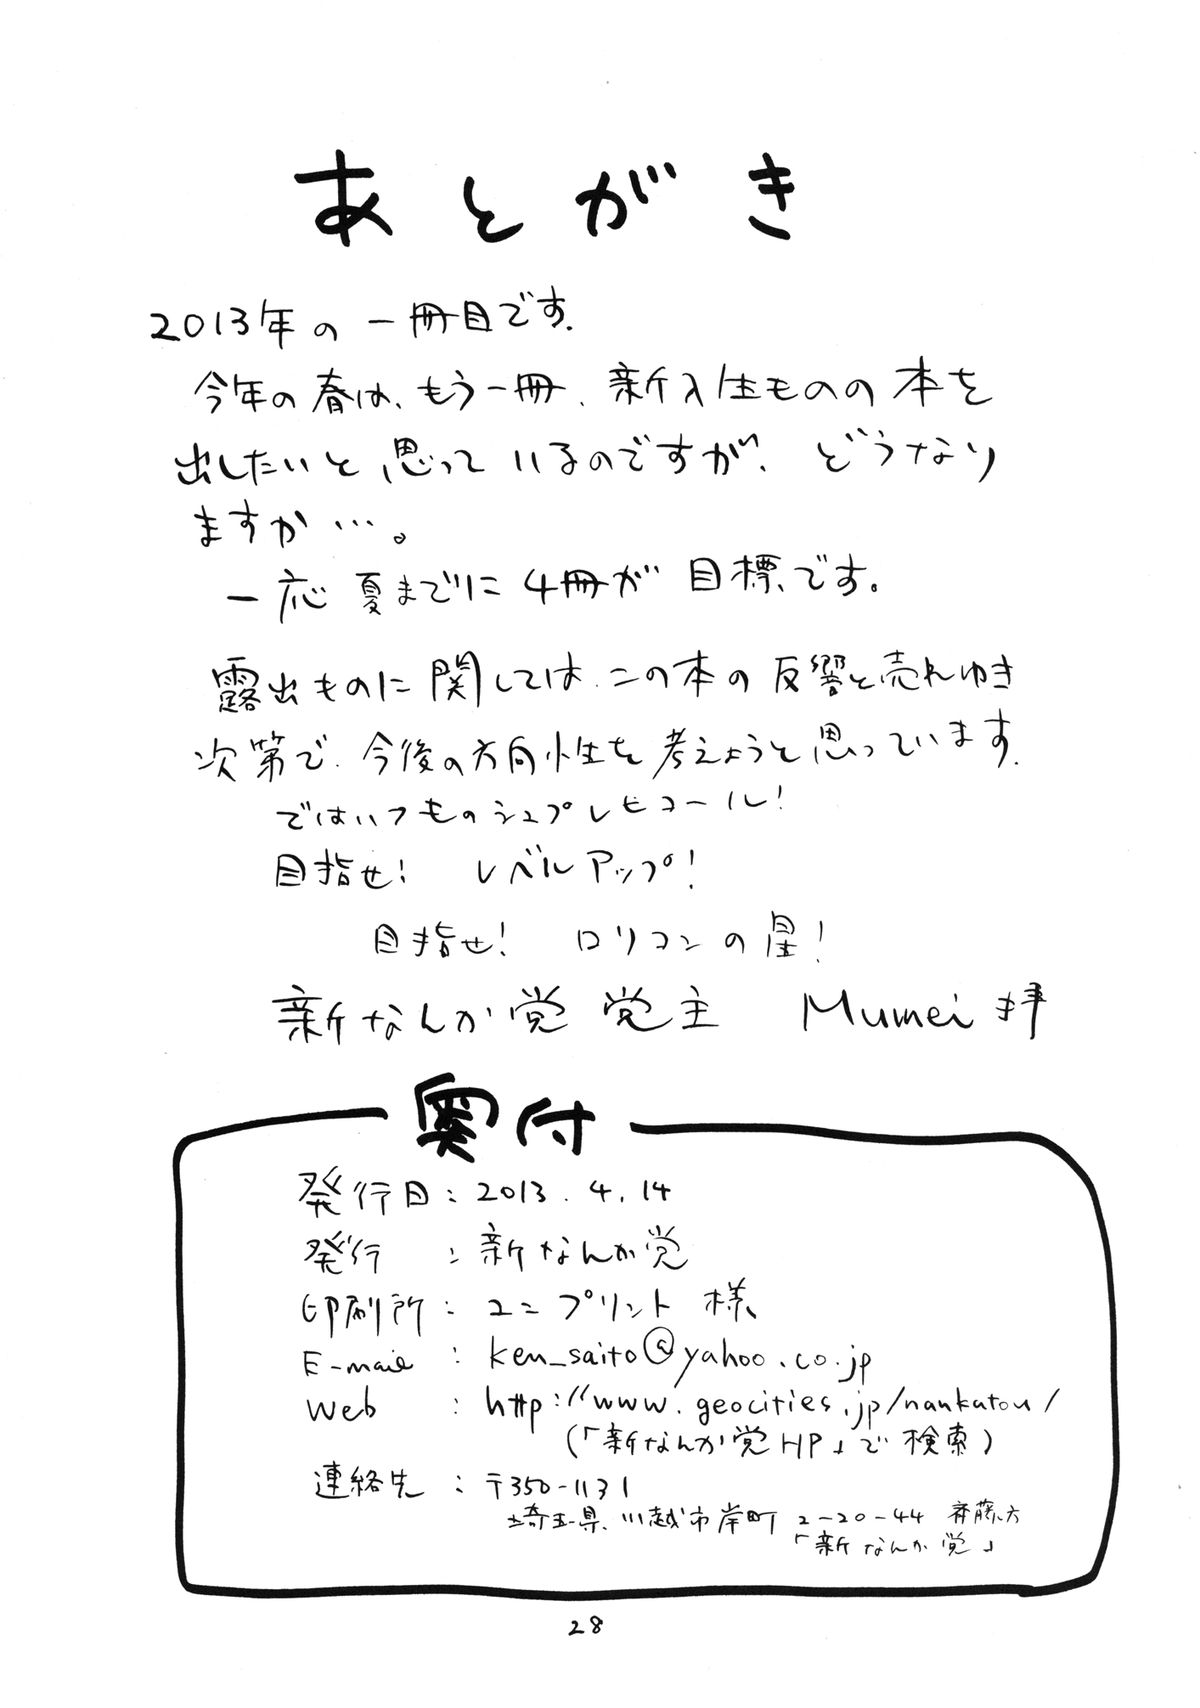 あとがき
2013年の一冊目です.
今年の春は、もう一冊、新入生ものの本を
出したいと思っているのですが、どうなり
ますか…。
一応夏までに4冊が目標です。
露出ものに関しては、この本の反響と売れゆき
次第で、今後の方向性を考えようと思っています.
ではいつものシュプレヒコール!
目指せ! レベルアップ!
目指せ! ロリコンの星!
新なんか党 党主 Mumei拝
奥付
発行日:2013.4.14
発行:新なんか党
印刷所:ユニプリント様
E-mail:ken_saito@yahoo.co.jp
Web:http://www.geocities.jp/nankatou/
(「新なんか党HP」で検索)
連絡先:〒350-1131
埼玉県川越市岸町2-20-44 斉藤方
「新なんか党」
28